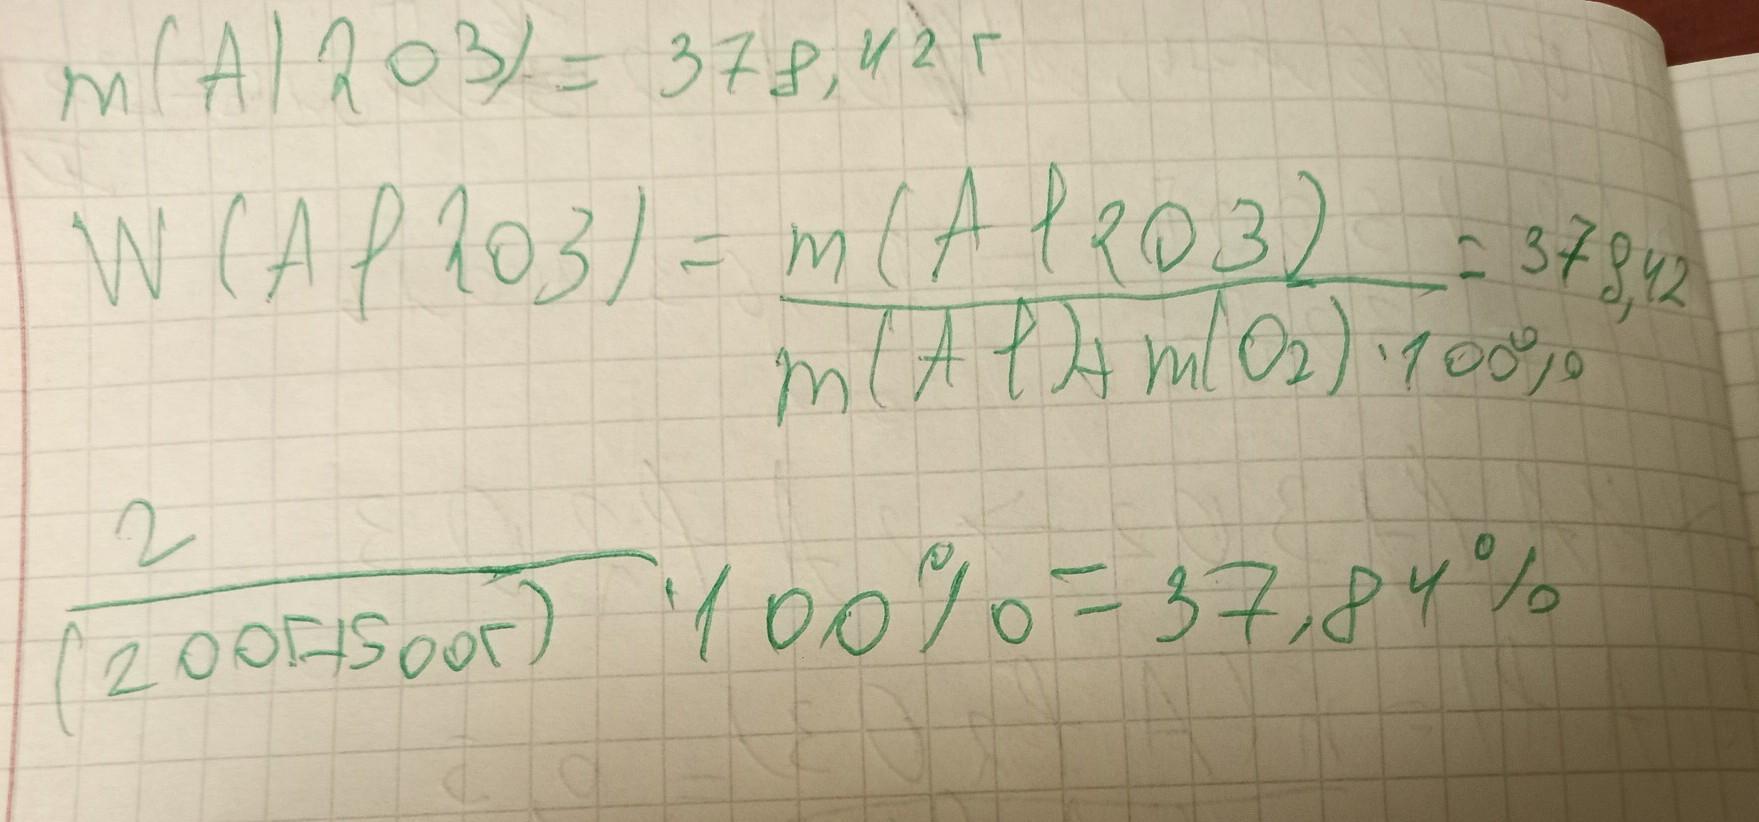 m(Al2O3) = 378,42 г
W(Al2O3) = m(Al2O3) = 378,42
m(Al)+m(O2) · 100%
2
(200г+500г) · 100% = 37,84%